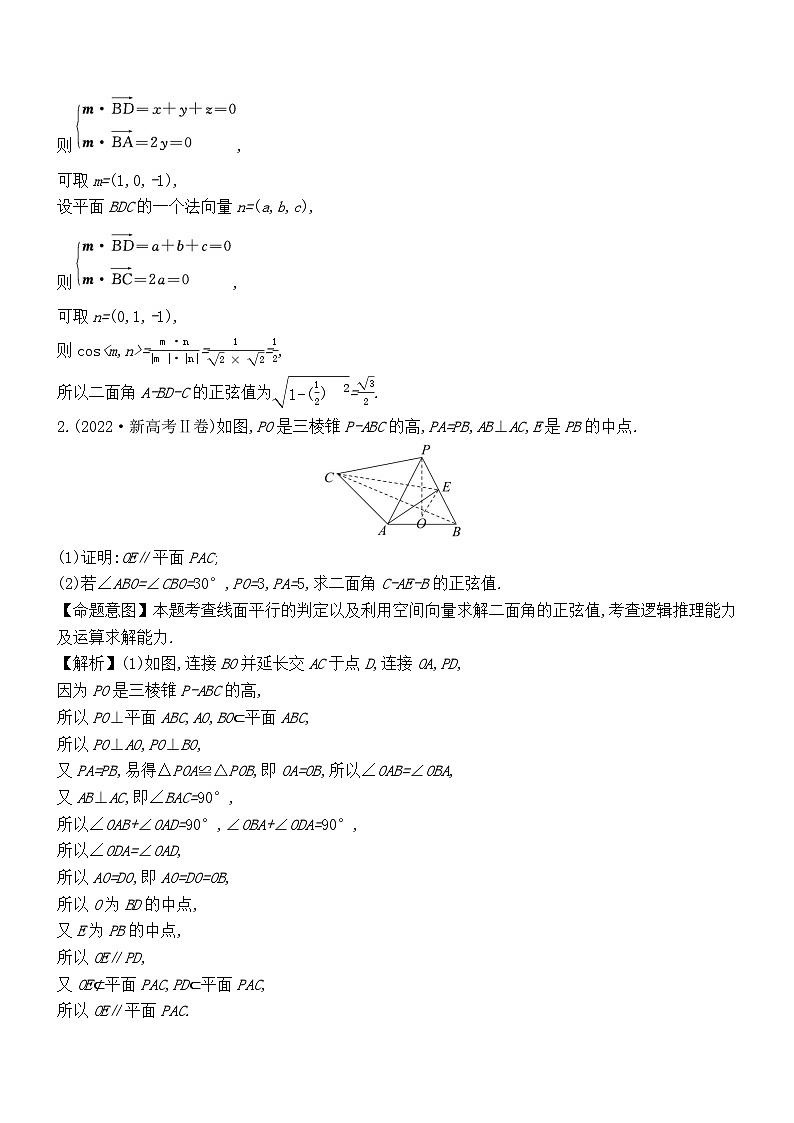 则{m·BD=x+y+z=0
m·BA=2y=0 ,
可取m=(1,0,-1),
设平面BDC的一个法向量n=(a,b,c),
则{m·BD=a+b+c=0
m·BC=2a=0 ,
可取n=(0,1,-1),
则cos<m,n>=m·n/|m|·|n|=1/√2×√2=1/2,
所以二面角A-BD-C的正弦值为√1-(1/2)²=√3/2.
2.(2022·新高考Ⅱ卷)如图,PO是三棱锥P-ABC的高,PA=PB,AB⊥AC,E是PB的中点.
P
C
E
A O B
(1)证明:OE∥平面PAC;
(2)若∠ABO=∠CBO=30°,PO=3,PA=5,求二面角C-AE-B的正弦值.
【命题意图】本题考查线面平行的判定以及利用空间向量求解二面角的正弦值,考查逻辑推理能力
及运算求解能力.
【解析】(1)如图,连接BO并延长交AC于点D,连接OA,PD,
因为PO是三棱锥P-ABC的高,
所以PO⊥平面ABC,AO,BO⊂平面ABC,
所以PO⊥AO,PO⊥BO,
又PA=PB,易得△POA≌△POB,即OA=OB,所以∠OAB=∠OBA,
又AB⊥AC,即∠BAC=90°,
所以∠OAB+∠OAD=90°,∠OBA+∠ODA=90°,
所以∠ODA=∠OAD,
所以AO=DO,即AO=DO=OB,
所以O为BD的中点,
又E为PB的中点,
所以OE∥PD,
又OE⊄平面PAC,PD⊂平面PAC,
所以OE∥平面PAC.